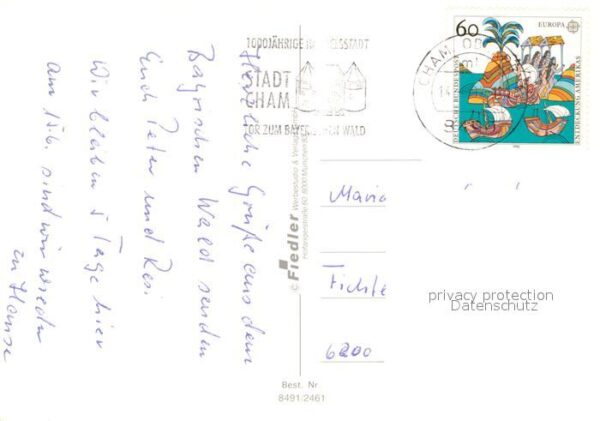 Herzliche Grüße aus dem
Bayrischen Wald senden
Euch Peter und Resi
Wir bleiben 5 Tage hier
am 1.6. sind wir wieder
zu Hause
1000JÄHRIGE HANDELSSTADT
STADT
CHAM
TOR ZUM BAYERISCHEN WALD
CHAM
60
EUROPA
DEUTSCHE BUNDESPOST
ENTDECKUNG AMERIKAS
© Fiedler Werbestudio & Verlag
8000 München
Maria
Fichte
6200
privacy protection
Datenschutz
Best. Nr
8491:2461